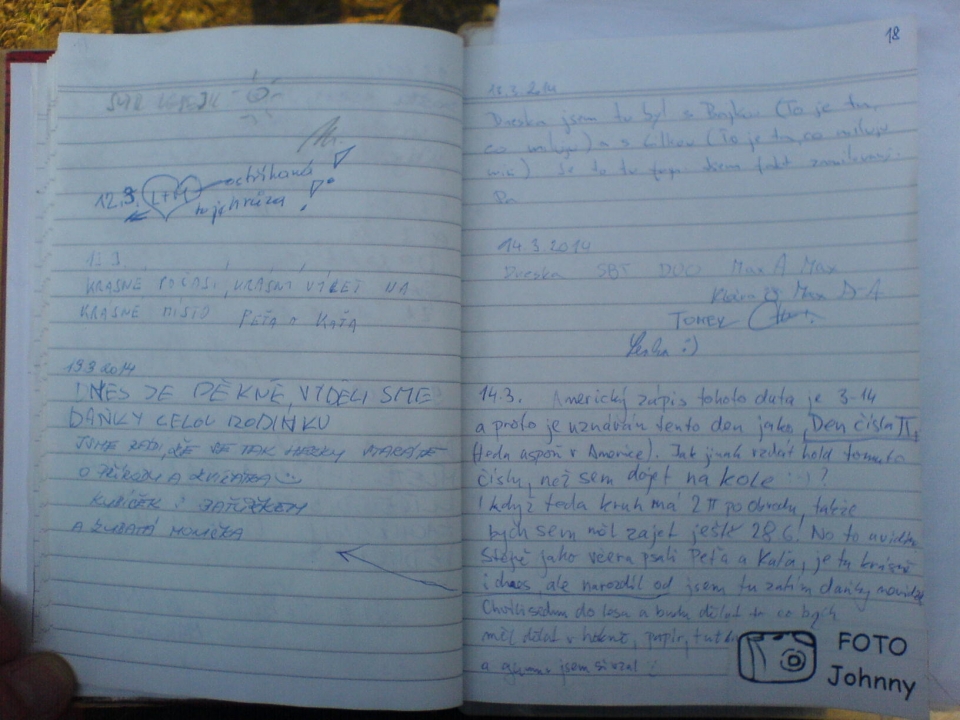 12.3. L+M ostříhaná
tu je hrůza!
13.3.
KRÁSNÉ POČASÍ, KRÁSNÝ VÝLET NA
KRÁSNÉ MÍSTO PEŤA A KAŤA
13.3.2014
DNES JE PĚKNĚ, VIDĚLI SME
DAŇKY CELOU RODINKU
JSME RÁDI, ŽE SE TAK HEZKY STARÁTE
O PŘÍRODU A ZVÍŘÁTKA
KUBÍČEK S
A ZUBATÁ MONIČKA
18
13.3.2014
Dneska jsem tu byl s (To je ta,
co miluju) a s (To je ta, co miluje
mě)
14.3.2014
Dneska SBT DUO Max A Max
Klára & Max
TOMEK
Lenka :)
14.3. Americký zápis tohoto data je 3-14
a proto je uznáván tento den jako Den čísla π,
(teda aspoň v Americe). Jak jinak vzdát hold tomuto
číslu, než sem dojet na kole ...?
I když teda kruh má 2π po obvodu, takže
bych sem měl zajet ještě 28.6! No to uvidím
Stejně jako včera psali Peťa a Kaťa, je tu krásně
i dnes, ale narozdíl od jsem tu zatím daňky neviděl
Chvíli sednu do lesa a budu dělat to co bych
měl dělat v hokně, papír, tužku
a jsem si vzal
FOTO
Johnny